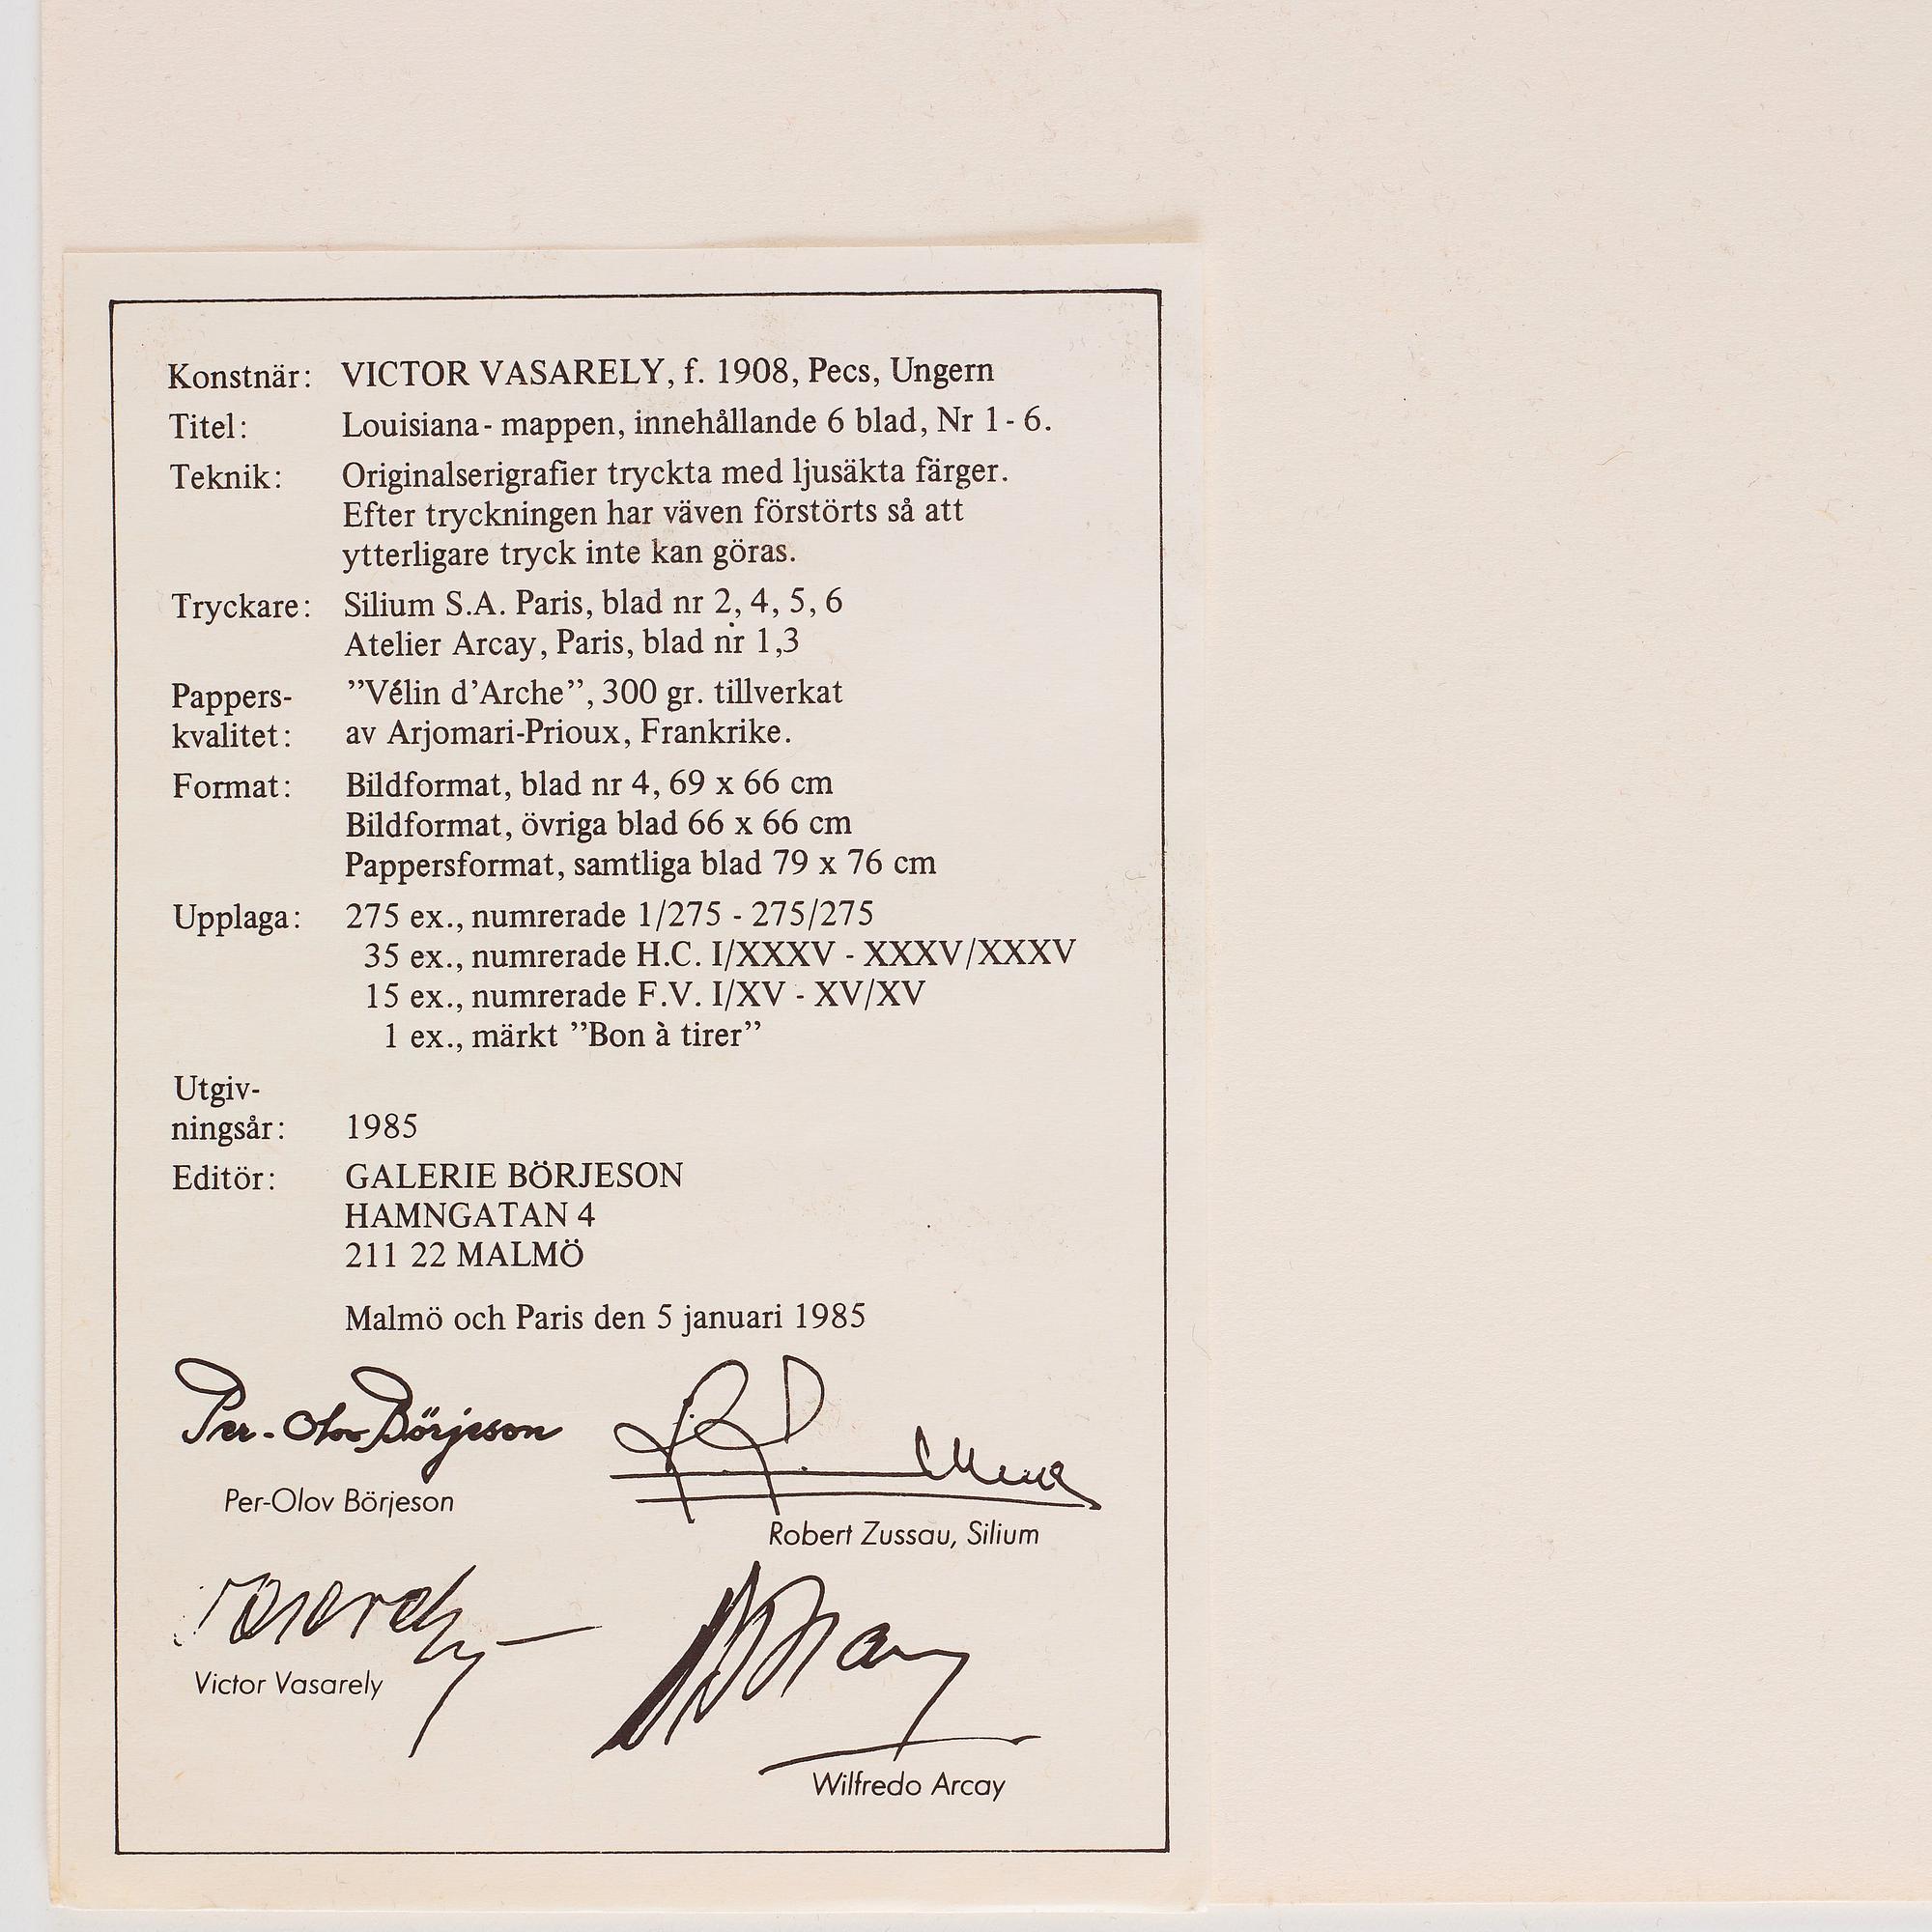 Konstnär: VICTOR VASARELY, f. 1908, Pecs, Ungern
Titel: Louisiana-mappen, innehållande 6 blad, Nr 1-6.
Teknik: Originalserigrafier tryckta med ljusäkta färger.
Efter tryckningen har väven förstörts så att
ytterligare tryck inte kan göras.
Tryckare: Silium S.A. Paris, blad nr 2, 4, 5, 6
Atelier Arcay, Paris, blad nr 1,3
Pappers- ”Vélin d’Arche”, 300 gr. tillverkat
kvalitet: av Arjomari-Prioux, Frankrike.
Format: Bildformat, blad nr 4, 69 x 66 cm
Bildformat, övriga blad 66 x 66 cm
Pappersformat, samtliga blad 79 x 76 cm
Upplaga: 275 ex., numrerade 1/275 - 275/275
35 ex., numrerade H.C. I/XXXV - XXXV/XXXV
15 ex., numrerade F.V. I/XV - XV/XV
1 ex., märkt ”Bon à tirer”
Utgiv-
ningsår: 1985
Editör: GALERIE BÖRJESON
HAMNGATAN 4
211 22 MALMÖ
Malmö och Paris den 5 januari 1985
Per-Olov Börjeson
Per-Olov Börjeson
Robert Zussau, Silium
Vasarely
Victor Vasarely
Arcay
Wilfredo Arcay